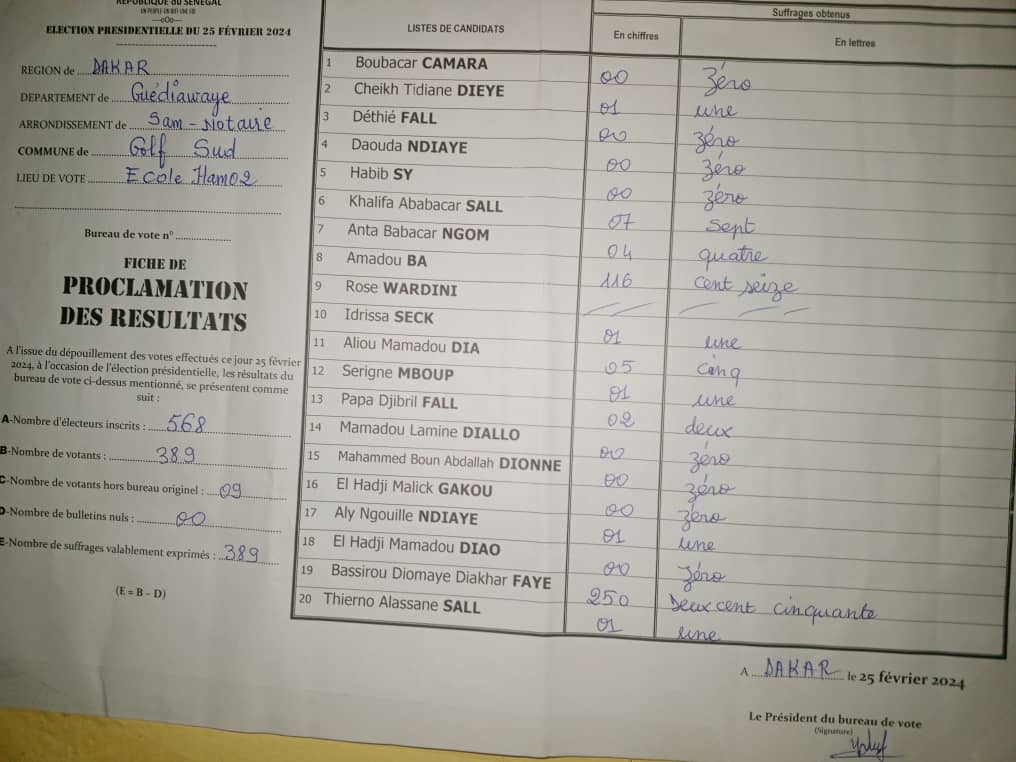 REPUBLIQUE DU SENEGAL
UN PEUPLE-UN BUT-UNE FOI
---oOo---
ELECTION PRESIDENTIELLE DU 25 FÉVRIER 2024
REGION de DAKAR
DEPARTEMENT de Guédiawaye
ARRONDISSEMENT de Sam-Notaire
COMMUNE de Golf Sud
LIEU DE VOTE Ecole Hamo2
Bureau de vote n°
FICHE DE
PROCLAMATION
DES RESULTATS
A l'issue du dépouillement des votes effectués ce jour 25 février
2024, à l'occasion de l'élection présidentielle, les résultats du
bureau de vote ci-dessus mentionné, se présentent comme
suit :
A-Nombre d'électeurs inscrits : 568
B-Nombre de votants : 389
C-Nombre de votants hors bureau originel : 09
D-Nombre de bulletins nuls : 00
E-Nombre de suffrages valablement exprimés : 389
(E = B – D)
LISTES DE CANDIDATS
Suffrages obtenus
En chiffres En lettres
1 Boubacar CAMARA 00 Zéro
2 Cheikh Tidiane DIEYE 01 une
3 Déthié FALL 00 zéro
4 Daouda NDIAYE 00 zéro
5 Habib SY 00 zéro
6 Khalifa Ababacar SALL 07 sept
7 Anta Babacar NGOM 04 quatre
8 Amadou BA 116 cent seize
9 Rose WARDINI
10 Idrissa SECK 01 une
11 Aliou Mamadou DIA 05 cinq
12 Serigne MBOUP 01 une
13 Papa Djibril FALL 02 deux
14 Mamadou Lamine DIALLO 00 zéro
15 Mahammed Boun Abdallah DIONNE 00 zéro
16 El Hadji Malick GAKOU 00 zéro
17 Aly Ngouille NDIAYE 01 une
18 El Hadji Mamadou DIAO 00 zéro
19 Bassirou Diomaye Diakhar FAYE 250 Deux cent cinquante
20 Thierno Alassane SALL 01 une
A DAKAR le 25 février 2024
Le Président du bureau de vote
(Signature)